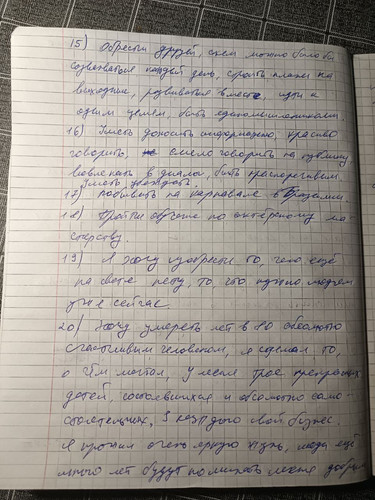 15) Обрести друзей, с кем можно было бы
созваниваться каждый день, строить планы на
выходные, развиваться вместе, идти к
одним целям, быть единомышленниками.
16) Уметь доносить информацию, красиво
говорить, смело говорить на публику,
вовлекать в диалог, быть красноречивым.
Уметь убеждать.
17) Побывать на карнавале в Бразилии
18) Пройти обучение по актёрскому ма-
стерству.
19) Я хочу изобрести то, чего ещё
на свете нету, то что нужно людям
уже сейчас
20) Хочу умереть лет в 80 абсолютно
счастливым человеком, я сделал то,
о чём мечтал, У меня трое прекрасных
детей, состоявшихся и абсолютно само-
стоятельных, У каждого свой бизнес.
Я прожил очень яркую жизнь, люди ещё
много лет будут поминать меня добрым